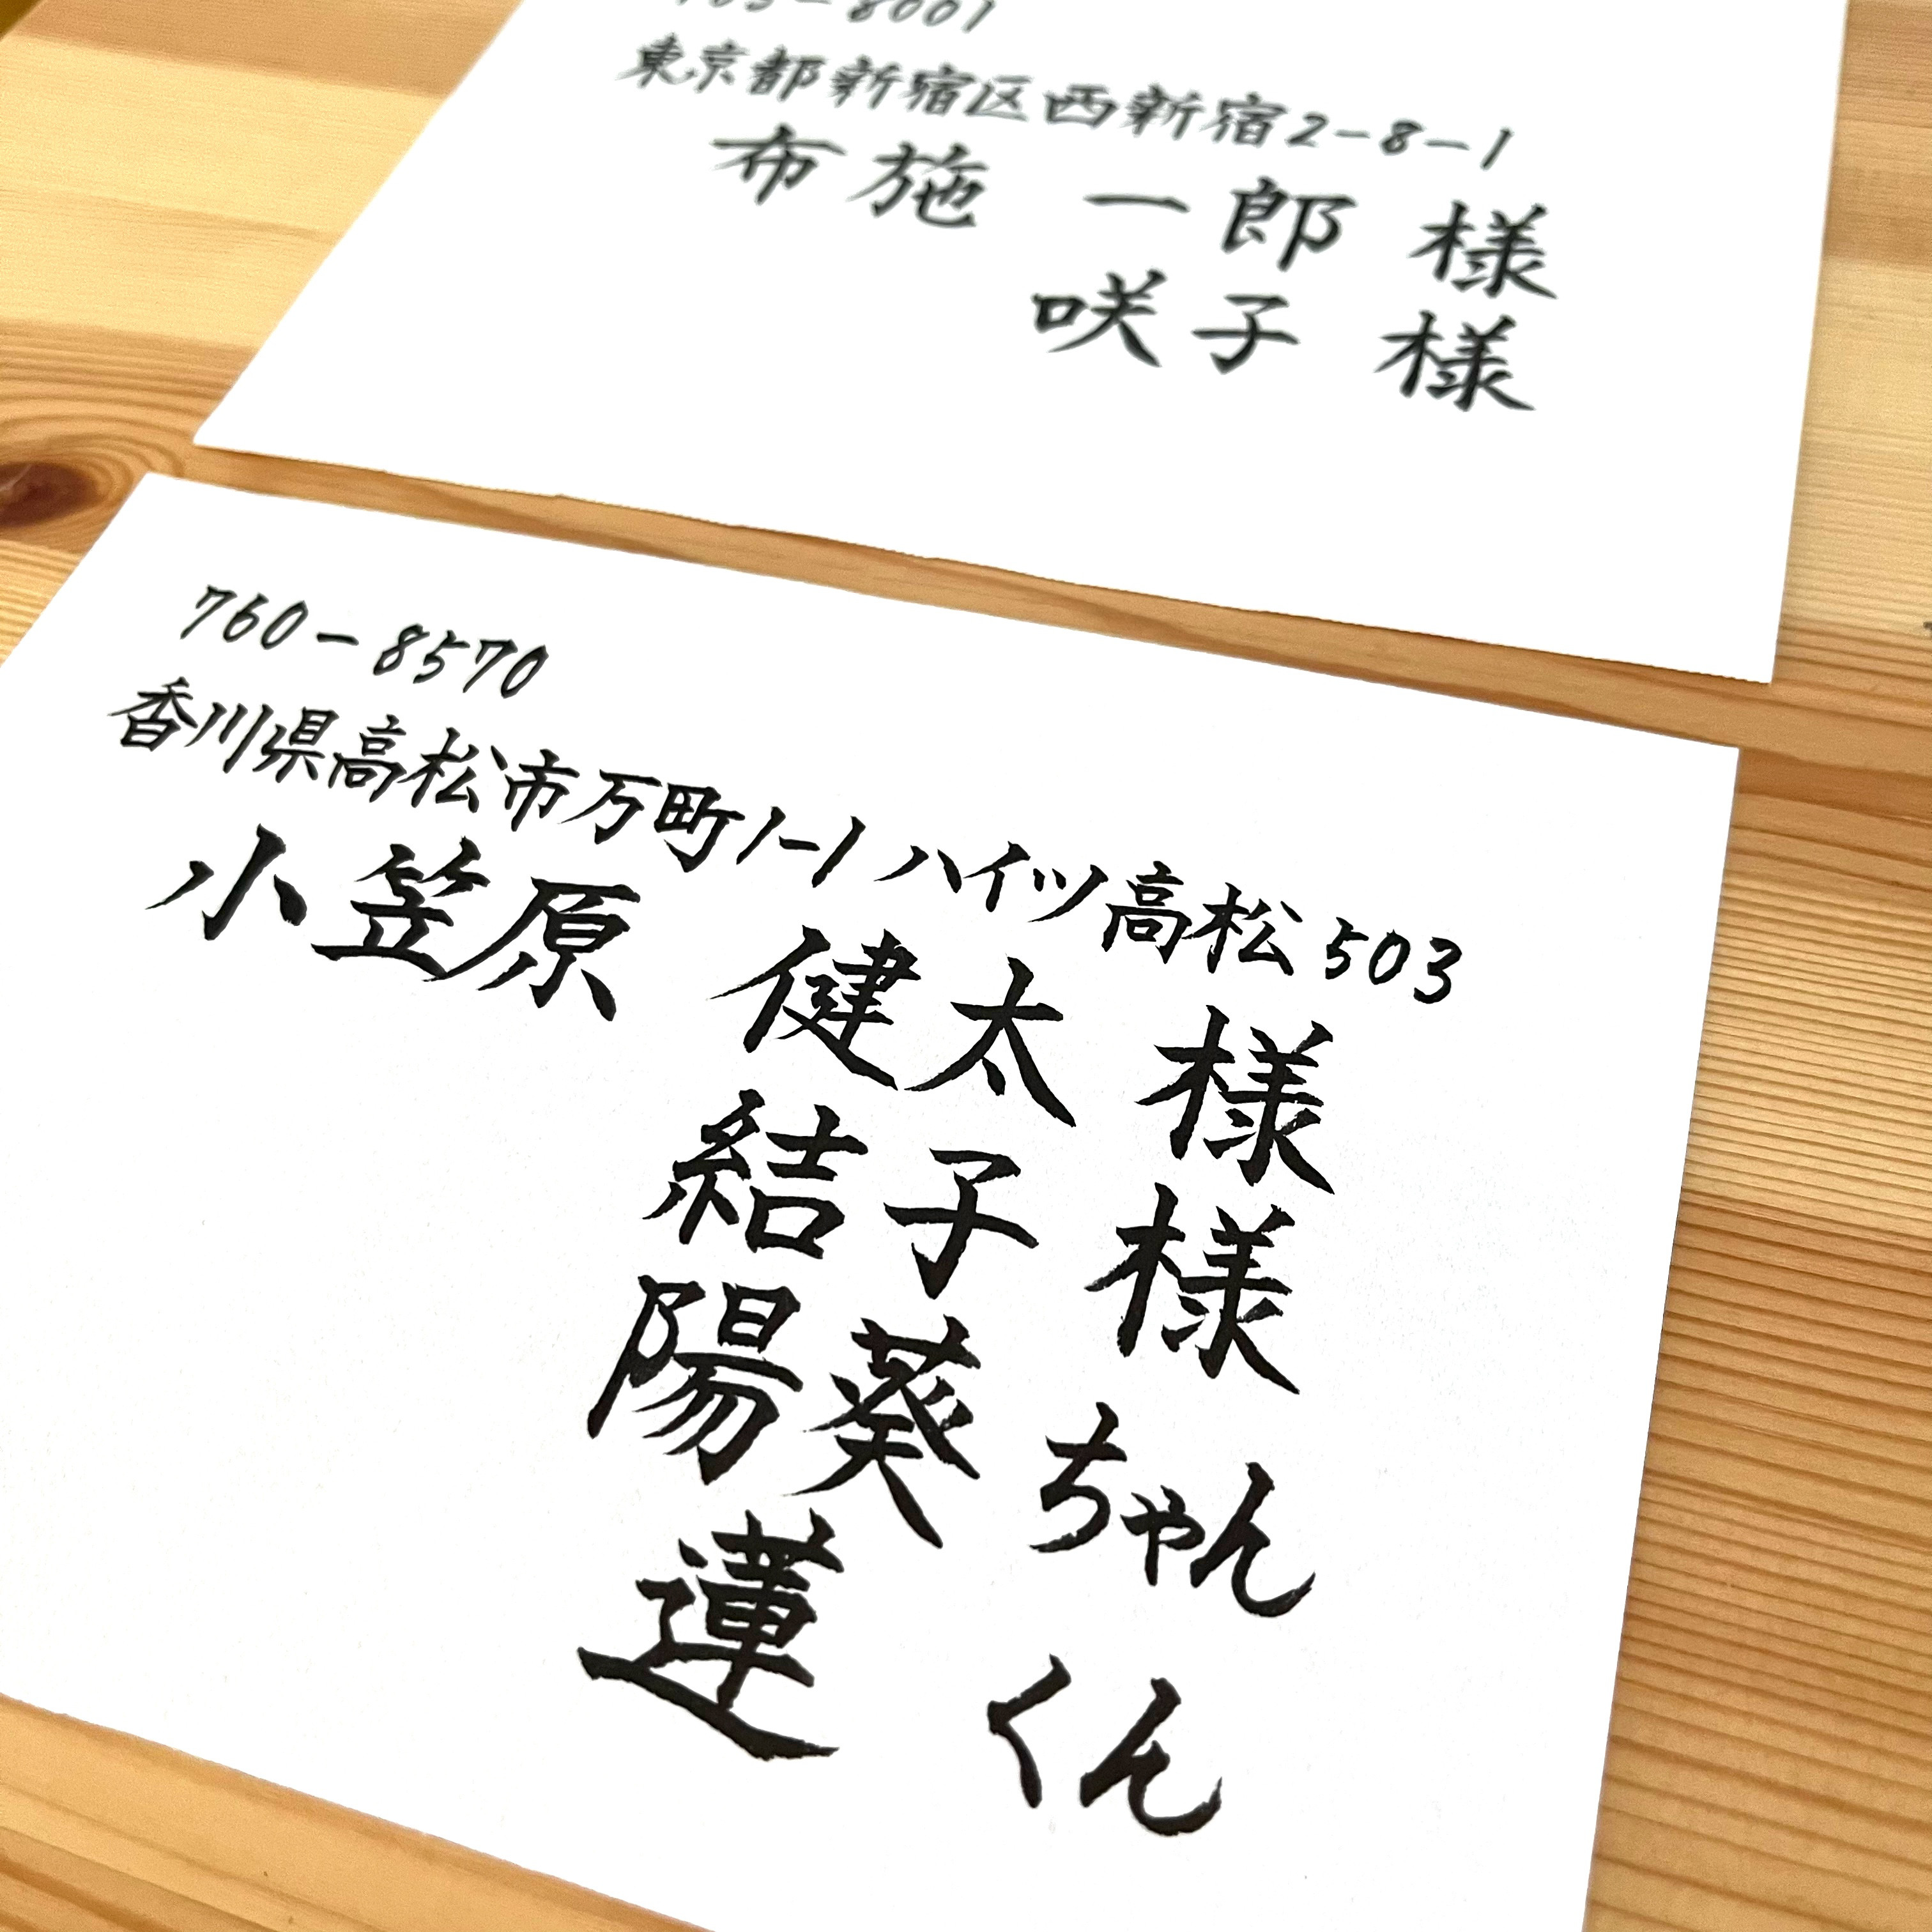 東京都新宿区西新宿2-8-1
布施 一郎 様
咲子 様
760-8570
香川県高松市万町1-1 ハイツ高松503
小笠原 健太 様
結子 様
陽葵 ちゃん
蓮 くん